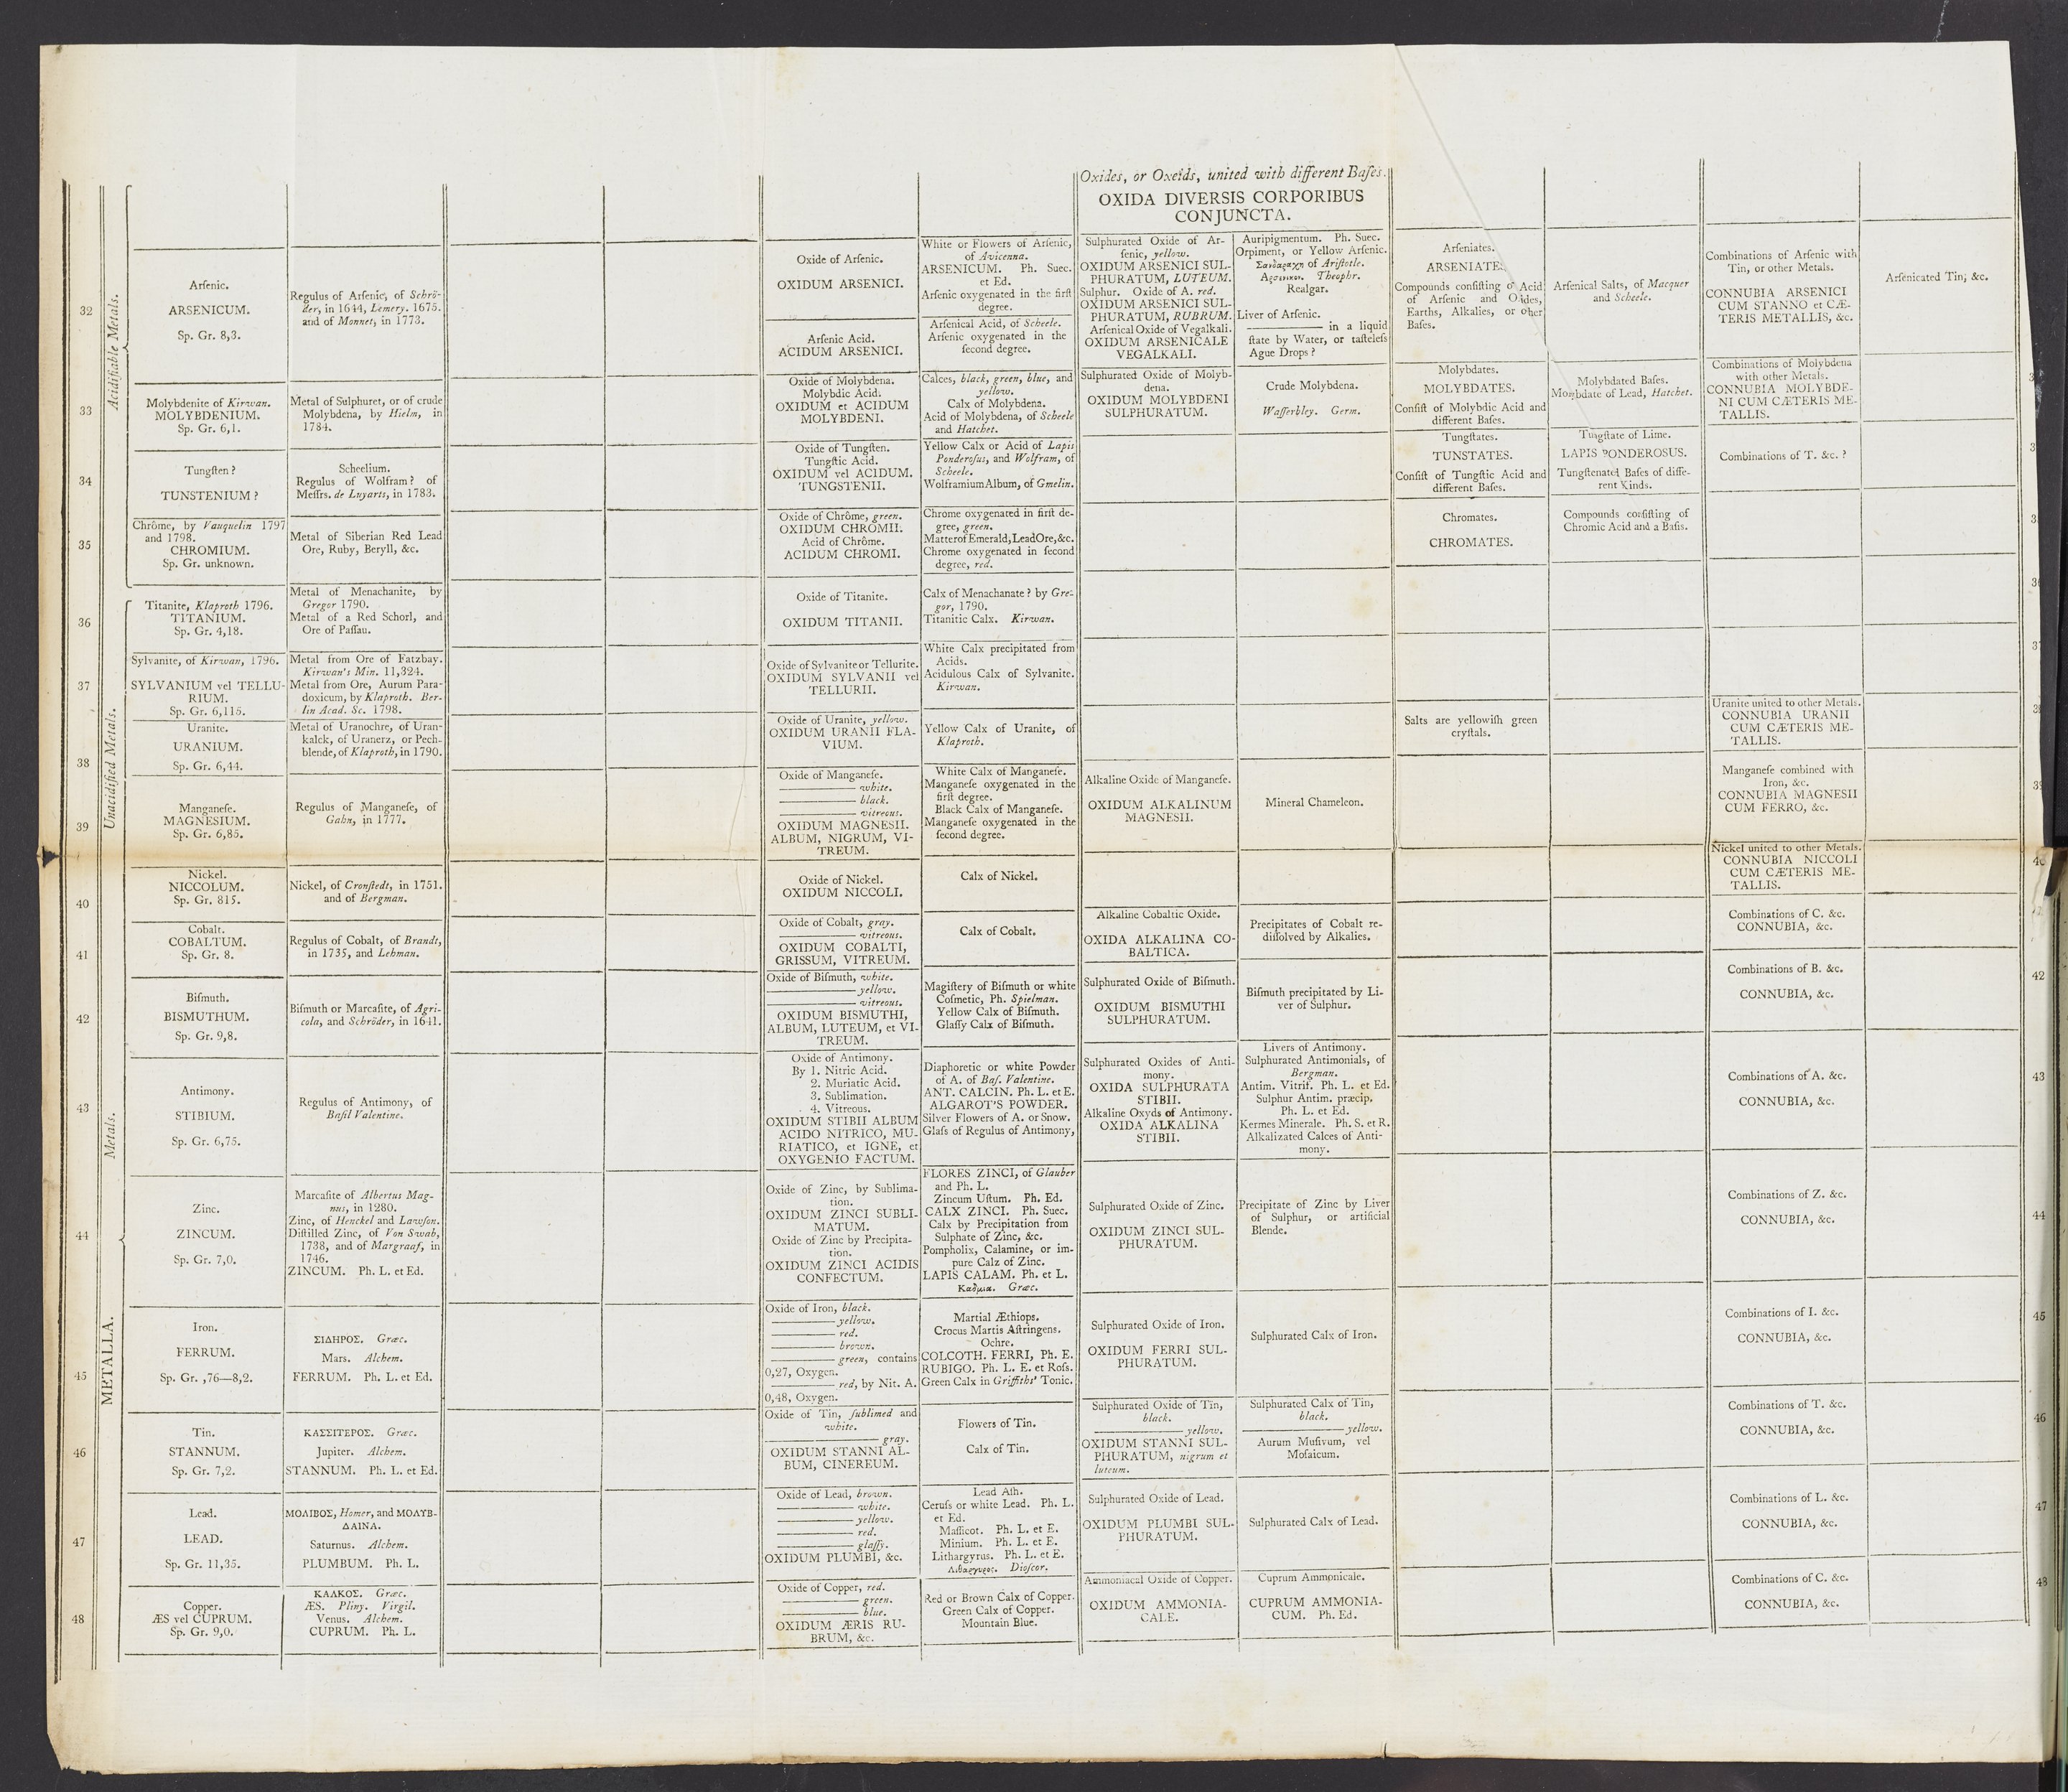 Oxides, or Oxeids, united with different Baſes.
OXIDA DIVERSIS CORPORIBUS
CONJUNCTA.
Acidifiable Metals.
32
Arſenic.
ARSENICUM.
Sp. Gr. 8,3.
Regulus of Arſenic, of Schrö-
der, in 1644, Lemery. 1675.
and of Monnet, in 1773.
Oxide of Arſenic.
OXIDUM ARSENICI.
Arſenic Acid.
ACIDUM ARSENICI.
White or Flowers of Arſenic,
of Avicenna.
ARSENICUM. Ph. Suec.
et Ed.
Arſenic oxygenated in the firſt
degree.
Arſenical Acid, of Scheele.
Arſenic oxygenated in the
ſecond degree.
Sulphurated Oxide of Ar-
ſenic, yellow.
OXIDUM ARSENICI SUL-
PHURATUM, LUTEUM.
Sulphur. Oxide of A. red.
OXIDUM ARSENICI SUL-
PHURATUM, RUBRUM.
Arſenical Oxide of Vegalkali.
OXIDUM ARSENICALE
VEGALKALI.
Auripigmentum. Ph. Suec.
Orpiment, or Yellow Arſenic.
Σανδαραχη of Ariſtotle.
Αρσενικον. Theophr.
Realgar.
Liver of Arſenic.
——— in a liquid
ſtate by Water, or taſteleſs
Ague Drops?
Arſeniates.
ARSENIATES.
Compounds conſiſting of Acid
of Arſenic and Oxides,
Earths, Alkalies, or other
Baſes.
Arſenical Salts, of Macquer
and Scheele.
Combinations of Arſenic with
Tin, or other Metals.
CONNUBIA ARSENICI
CUM STANNO et CÆ-
TERIS METALLIS, &c.
Arſenicated Tin, &c.
33
Molybdenite of Kirwan.
MOLYBDENIUM.
Sp. Gr. 6,1.
Metal of Sulphuret, or of crude
Molybdena, by Hielm, in
1784.
Oxide of Molybdena.
Molybdic Acid.
OXIDUM et ACIDUM
MOLYBDENI.
Calces, black, green, blue, and
yellow.
Calx of Molybdena.
Acid of Molybdena, of Scheele
and Hatchet.
Sulphurated Oxide of Molyb-
dena.
OXIDUM MOLYBDENI
SULPHURATUM.
Crude Molybdena.
Waſſerbley. Germ.
Molybdates.
MOLYBDATES.
Conſiſt of Molybdic Acid and
different Baſes.
Molybdated Baſes.
Molybdate of Lead, Hatchet.
Combinations of Molybdena
with other Metals.
CONNUBIA MOLYBDE-
NI CUM CÆTERIS ME-
TALLIS.
3
34
Tungſten?
TUNSTENIUM?
Scheelium.
Regulus of Wolfram? of
Meſſrs. de Luyarts, in 1783.
Oxide of Tungſten.
Tungſtic Acid.
OXIDUM vel ACIDUM.
TUNGSTENII.
Yellow Calx or Acid of Lapis
Ponderoſus, and Wolfram, of
Scheele.
Wolframium Album, of Gmelin.
Tungſtates.
TUNSTATES.
Conſiſt of Tungſtic Acid and
different Baſes.
Tungſtate of Lime.
LAPIS PONDEROSUS.
Tungſtenated Baſes of diffe-
rent Kinds.
Combinations of T. &c.?
3
35
Chrôme, by Vauquelin 1797
and 1798.
CHROMIUM.
Sp. Gr. unknown.
Metal of Siberian Red Lead
Ore, Ruby, Beryll, &c.
Oxide of Chrôme, green.
OXIDUM CHROMII.
Acid of Chrôme.
ACIDUM CHROMI.
Chrome oxygenated in firſt de-
gree, green.
Matter of Emerald, Lead Ore, &c.
Chrome oxygenated in ſecond
degree, red.
Chromates.
CHROMATES.
Compounds conſiſting of
Chromic Acid and a Baſis.
3
Unacidified Metals.
36
Titanite, Klaproth 1796.
TITANIUM.
Sp. Gr. 4,18.
Metal of Menachanite, by
Gregor 1790.
Metal of a Red Schorl, and
Ore of Paſſau.
Oxide of Titanite.
OXIDUM TITANII.
Calx of Menachanate? by Gre-
gor, 1790.
Titanitic Calx. Kirwan.
36
37
Sylvanite, of Kirwan, 1796.
SYLVANIUM vel TELLU-
RIUM.
Sp. Gr. 6,115.
Metal from Ore of Fatzbay.
Kirwan's Min. 11,324.
Metal from Ore, Aurum Para-
doxicum, by Klaproth. Ber-
lin Acad. Sc. 1798.
Oxide of Sylvanite or Tellurite.
OXIDUM SYLVANII vel
TELLURII.
White Calx precipitated from
Acids.
Acidulous Calx of Sylvanite.
Kirwan.
37
38
Uranite.
URANIUM.
Sp. Gr. 6,44.
Metal of Uranochre, of Uran-
kalck, of Uranerz, or Pech-
blende, of Klaproth, in 1790.
Oxide of Uranite, yellow.
OXIDUM URANII FLA-
VIUM.
Yellow Calx of Uranite, of
Klaproth.
Salts are yellowiſh green
cryſtals.
Uranite united to other Metals.
CONNUBIA URANII
CUM CÆTERIS ME-
TALLIS.
38
39
Manganeſe.
MAGNESIUM.
Sp. Gr. 6,85.
Regulus of Manganeſe, of
Gahn, in 1777.
Oxide of Manganeſe.
——— white.
——— black.
——— vitreous.
OXIDUM MAGNESII.
ALBUM, NIGRUM, VI-
TREUM.
White Calx of Manganeſe.
Manganeſe oxygenated in the
firſt degree.
Black Calx of Manganeſe.
Manganeſe oxygenated in the
ſecond degree.
Alkaline Oxide of Manganeſe.
OXIDUM ALKALINUM
MAGNESII.
Mineral Chameleon.
Manganeſe combined with
Iron, &c.
CONNUBIA MAGNESII
CUM FERRO, &c.
39
Metals.
METALLA.
40
Nickel.
NICCOLUM.
Sp. Gr. 815.
Nickel, of Cronſtedt, in 1751.
and of Bergman.
Oxide of Nickel.
OXIDUM NICCOLI.
Calx of Nickel.
Nickel united to other Metals.
CONNUBIA NICCOLI
CUM CÆTERIS ME-
TALLIS.
40
41
Cobalt.
COBALTUM.
Sp. Gr. 8.
Regulus of Cobalt, of Brandt,
in 1735, and Lehman.
Oxide of Cobalt, gray.
——— vitreous.
OXIDUM COBALTI,
GRISSUM, VITREUM.
Calx of Cobalt.
Alkaline Cobaltic Oxide.
OXIDA ALKALINA CO-
BALTICA.
Precipitates of Cobalt re-
diſſolved by Alkalies.
Combinations of C. &c.
CONNUBIA, &c.
42
Biſmuth.
BISMUTHUM.
Sp. Gr. 9,8.
Biſmuth or Marcaſite, of Agri-
cola, and Schröder, in 1641.
Oxide of Biſmuth, white.
——— yellow.
——— vitreous.
OXIDUM BISMUTHI,
ALBUM, LUTEUM, et VI-
TREUM.
Magiſtery of Biſmuth or white
Coſmetic, Ph. Spielman.
Yellow Calx of Biſmuth.
Glaſſy Calx of Biſmuth.
Sulphurated Oxide of Biſmuth.
OXIDUM BISMUTHI
SULPHURATUM.
Biſmuth precipitated by Li-
ver of Sulphur.
Combinations of B. &c.
CONNUBIA, &c.
42
43
Antimony.
STIBIUM.
Sp. Gr. 6,75.
Regulus of Antimony, of
Baſil Valentine.
Oxide of Antimony.
By 1. Nitric Acid.
2. Muriatic Acid.
3. Sublimation.
4. Vitreous.
OXIDUM STIBII ALBUM
ACIDO NITRICO, MU-
RIATICO, et IGNE, et
OXYGENIO FACTUM.
Diaphoretic or white Powder
of A. of Baſ. Valentine.
ANT. CALCIN. Ph. L. et E.
ALGAROT'S POWDER.
Silver Flowers of A. or Snow.
Glaſs of Regulus of Antimony,
Sulphurated Oxides of Anti-
mony.
OXIDA SULPHURATA
STIBII.
Alkaline Oxyds of Antimony.
OXIDA ALKALINA
STIBII.
Livers of Antimony.
Sulphurated Antimonials, of
Bergman.
Antim. Vitrif. Ph. L. et Ed.
Sulphur Antim. præcip.
Ph. L. et Ed.
Kermes Minerale. Ph. S. et R.
Alkalizated Calces of Anti-
mony.
Combinations of A. &c.
CONNUBIA, &c.
43
44
Zinc.
ZINCUM.
Sp. Gr. 7,0.
Marcaſite of Albertus Mag-
nus, in 1280.
Zinc, of Henckel and Lawſon.
Diſtilled Zinc, of Von Swab,
1738, and of Margraaf, in
1746.
ZINCUM. Ph. L. et Ed.
Oxide of Zinc, by Sublima-
tion.
OXIDUM ZINCI SUBLI-
MATUM.
Oxide of Zinc by Precipita-
tion.
OXIDUM ZINCI ACIDIS
CONFECTUM.
FLORES ZINCI, of Glauber
and Ph. L.
Zincum Uſtum. Ph. Ed.
CALX ZINCI. Ph. Suec.
Calx by Precipitation from
Sulphate of Zinc, &c.
Pompholix, Calamine, or im-
pure Calz of Zinc.
LAPIS CALAM. Ph. et L.
Καδμια. Græc.
Sulphurated Oxide of Zinc.
OXIDUM ZINCI SUL-
PHURATUM.
Precipitate of Zinc by Liver
of Sulphur, or artificial
Blende.
Combinations of Z. &c.
CONNUBIA, &c.
44
45
Iron.
FERRUM.
Sp. Gr. ,76—8,2.
ΣΙΔΗΡΟΣ. Græc.
Mars. Alchem.
FERRUM. Ph. L. et Ed.
Oxide of Iron, black.
——— yellow.
——— red.
——— brown.
——— green, contains
0,27, Oxygen.
——— red, by Nit. A.
0,48, Oxygen.
Martial Æthiops.
Crocus Martis Aſtringens.
Ochre.
COLCOTH. FERRI, Ph. E.
RUBIGO. Ph. L. E. et Roſs.
Green Calx in Griffiths' Tonic.
Sulphurated Oxide of Iron.
OXIDUM FERRI SUL-
PHURATUM.
Sulphurated Calx of Iron.
Combinations of I. &c.
CONNUBIA, &c.
45
46
Tin.
STANNUM.
Sp. Gr. 7,2.
ΚΑΣΣΙΤΕΡΟΣ. Græc.
Jupiter. Alchem.
STANNUM. Ph. L. et Ed.
Oxide of Tin, ſublimed and
white.
——— gray.
OXIDUM STANNI AL-
BUM, CINEREUM.
Flowers of Tin.
Calx of Tin.
Sulphurated Oxide of Tin,
black.
——— yellow.
OXIDUM STANNI SUL-
PHURATUM, nigrum et
luteum.
Sulphurated Calx of Tin,
black.
——— yellow.
Aurum Muſivum, vel
Moſaicum.
Combinations of T. &c.
CONNUBIA, &c.
46
47
Lead.
LEAD.
Sp. Gr. 11,35.
ΜΟΛΙΒΟΣ, Homer, and ΜΟΛΥΒ-
ΔΑΙΝΑ.
Saturnus. Alchem.
PLUMBUM. Ph. L.
Oxide of Lead, brown.
——— white.
——— yellow.
——— red.
——— glaſſy.
OXIDUM PLUMBI, &c.
Lead Aſh.
Ceruſs or white Lead. Ph. L.
et Ed.
Maſſicot. Ph. L. et E.
Minium. Ph. L. et E.
Lithargyrus. Ph. L. et E.
Λιθαργυρος. Dioſcor.
Sulphurated Oxide of Lead.
OXIDUM PLUMBI SUL-
PHURATUM.
Sulphurated Calx of Lead.
Combinations of L. &c.
CONNUBIA, &c.
47
48
Copper.
ÆS vel CUPRUM.
Sp. Gr. 9,0.
ΚΑΛΚΟΣ. Græc.
ÆS. Pliny. Virgil.
Venus. Alchem.
CUPRUM. Ph. L.
Oxide of Copper, red.
——— green.
——— blue.
OXIDUM ÆRIS RU-
BRUM, &c.
Red or Brown Calx of Copper.
Green Calx of Copper.
Mountain Blue.
Ammoniacal Oxide of Copper.
OXIDUM AMMONIA-
CALE.
Cuprum Ammonicale.
CUPRUM AMMONIA-
CUM. Ph. Ed.
Combinations of C. &c.
CONNUBIA, &c.
48